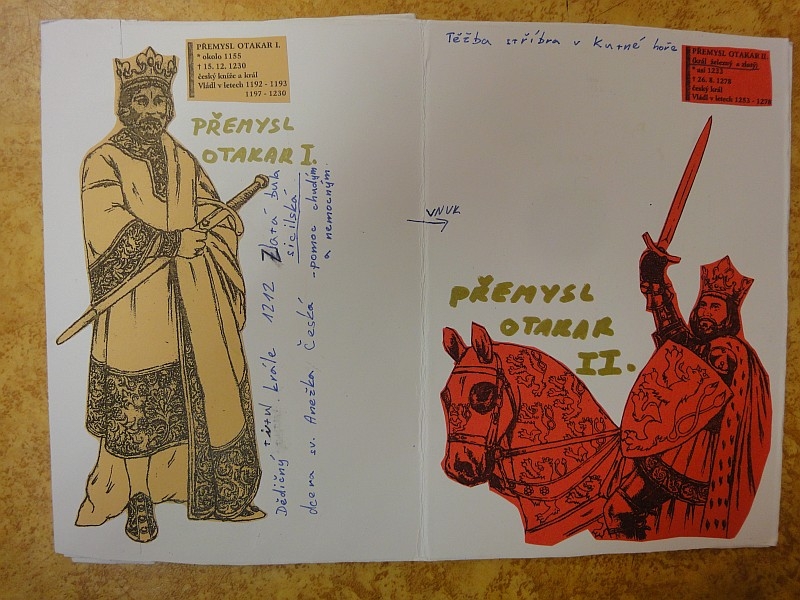 PŘEMYSL OTAKAR I.
* okolo 1155
† 15. 12. 1230
český kníže a král
Vládl v letech 1192 - 1193
1197 - 1230
PŘEMYSL
OTAKAR I.
Dědičný titul krále 1212 Zlatá bula
sicilská
dcera sv. Anežka Česká - pomoc chudým
a nemocným
VNUK
Těžba stříbra v Kutné hoře
PŘEMYSL OTAKAR II.
(král železný a zlatý)
* asi 1233
† 26. 8. 1278
český král
Vládl v letech 1253 - 1278
PŘEMYSL
OTAKAR
II.